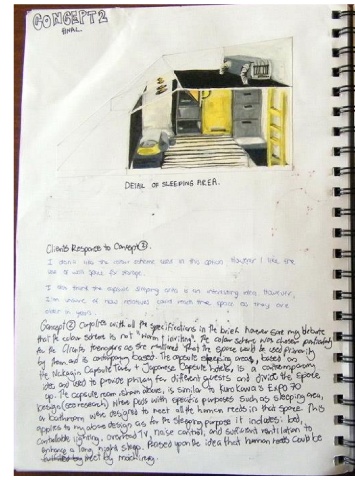 CONCEPT 2
FINAL.
DETAIL OF SLEEPING AREA.
Clients Response to Concept ②.
I don't like the colour scheme used in this option however I like the
use of wall space for storage.
I also think the capsule sleeping units is an interesting idea, however,
I'm unsure of how relatives would much the space as they are
older in years.
Concept ② complies with all the specifications in the brief. however some may debate
that the colour scheme is not "warm + inviting". The colour scheme was chosen particularly
for the Clients teenagers as she mentioned that the space would be used primarily
by them and is contemporary based. The capsule sleeping areas, based on
the Nakagin Capsule Tower + Japanese Capsule hotels, is a contemporary
idea and used to provide privacy for different guests and divide the space
up. The capsule room shown above, is similar to Kurokawa's Expo 70
design (see research) where pods with specific purposes such as sleeping area,
or bathroom were designed to meet all the human needs in that space. This
applies to my above design as for the sleeping purpose it includes: bed,
controllable lighting, overhead TV, noise control, and sufficient ventilation to
enhance a long, night sleep. Based upon the idea that human needs could be
fulfilled by meet by machinery.